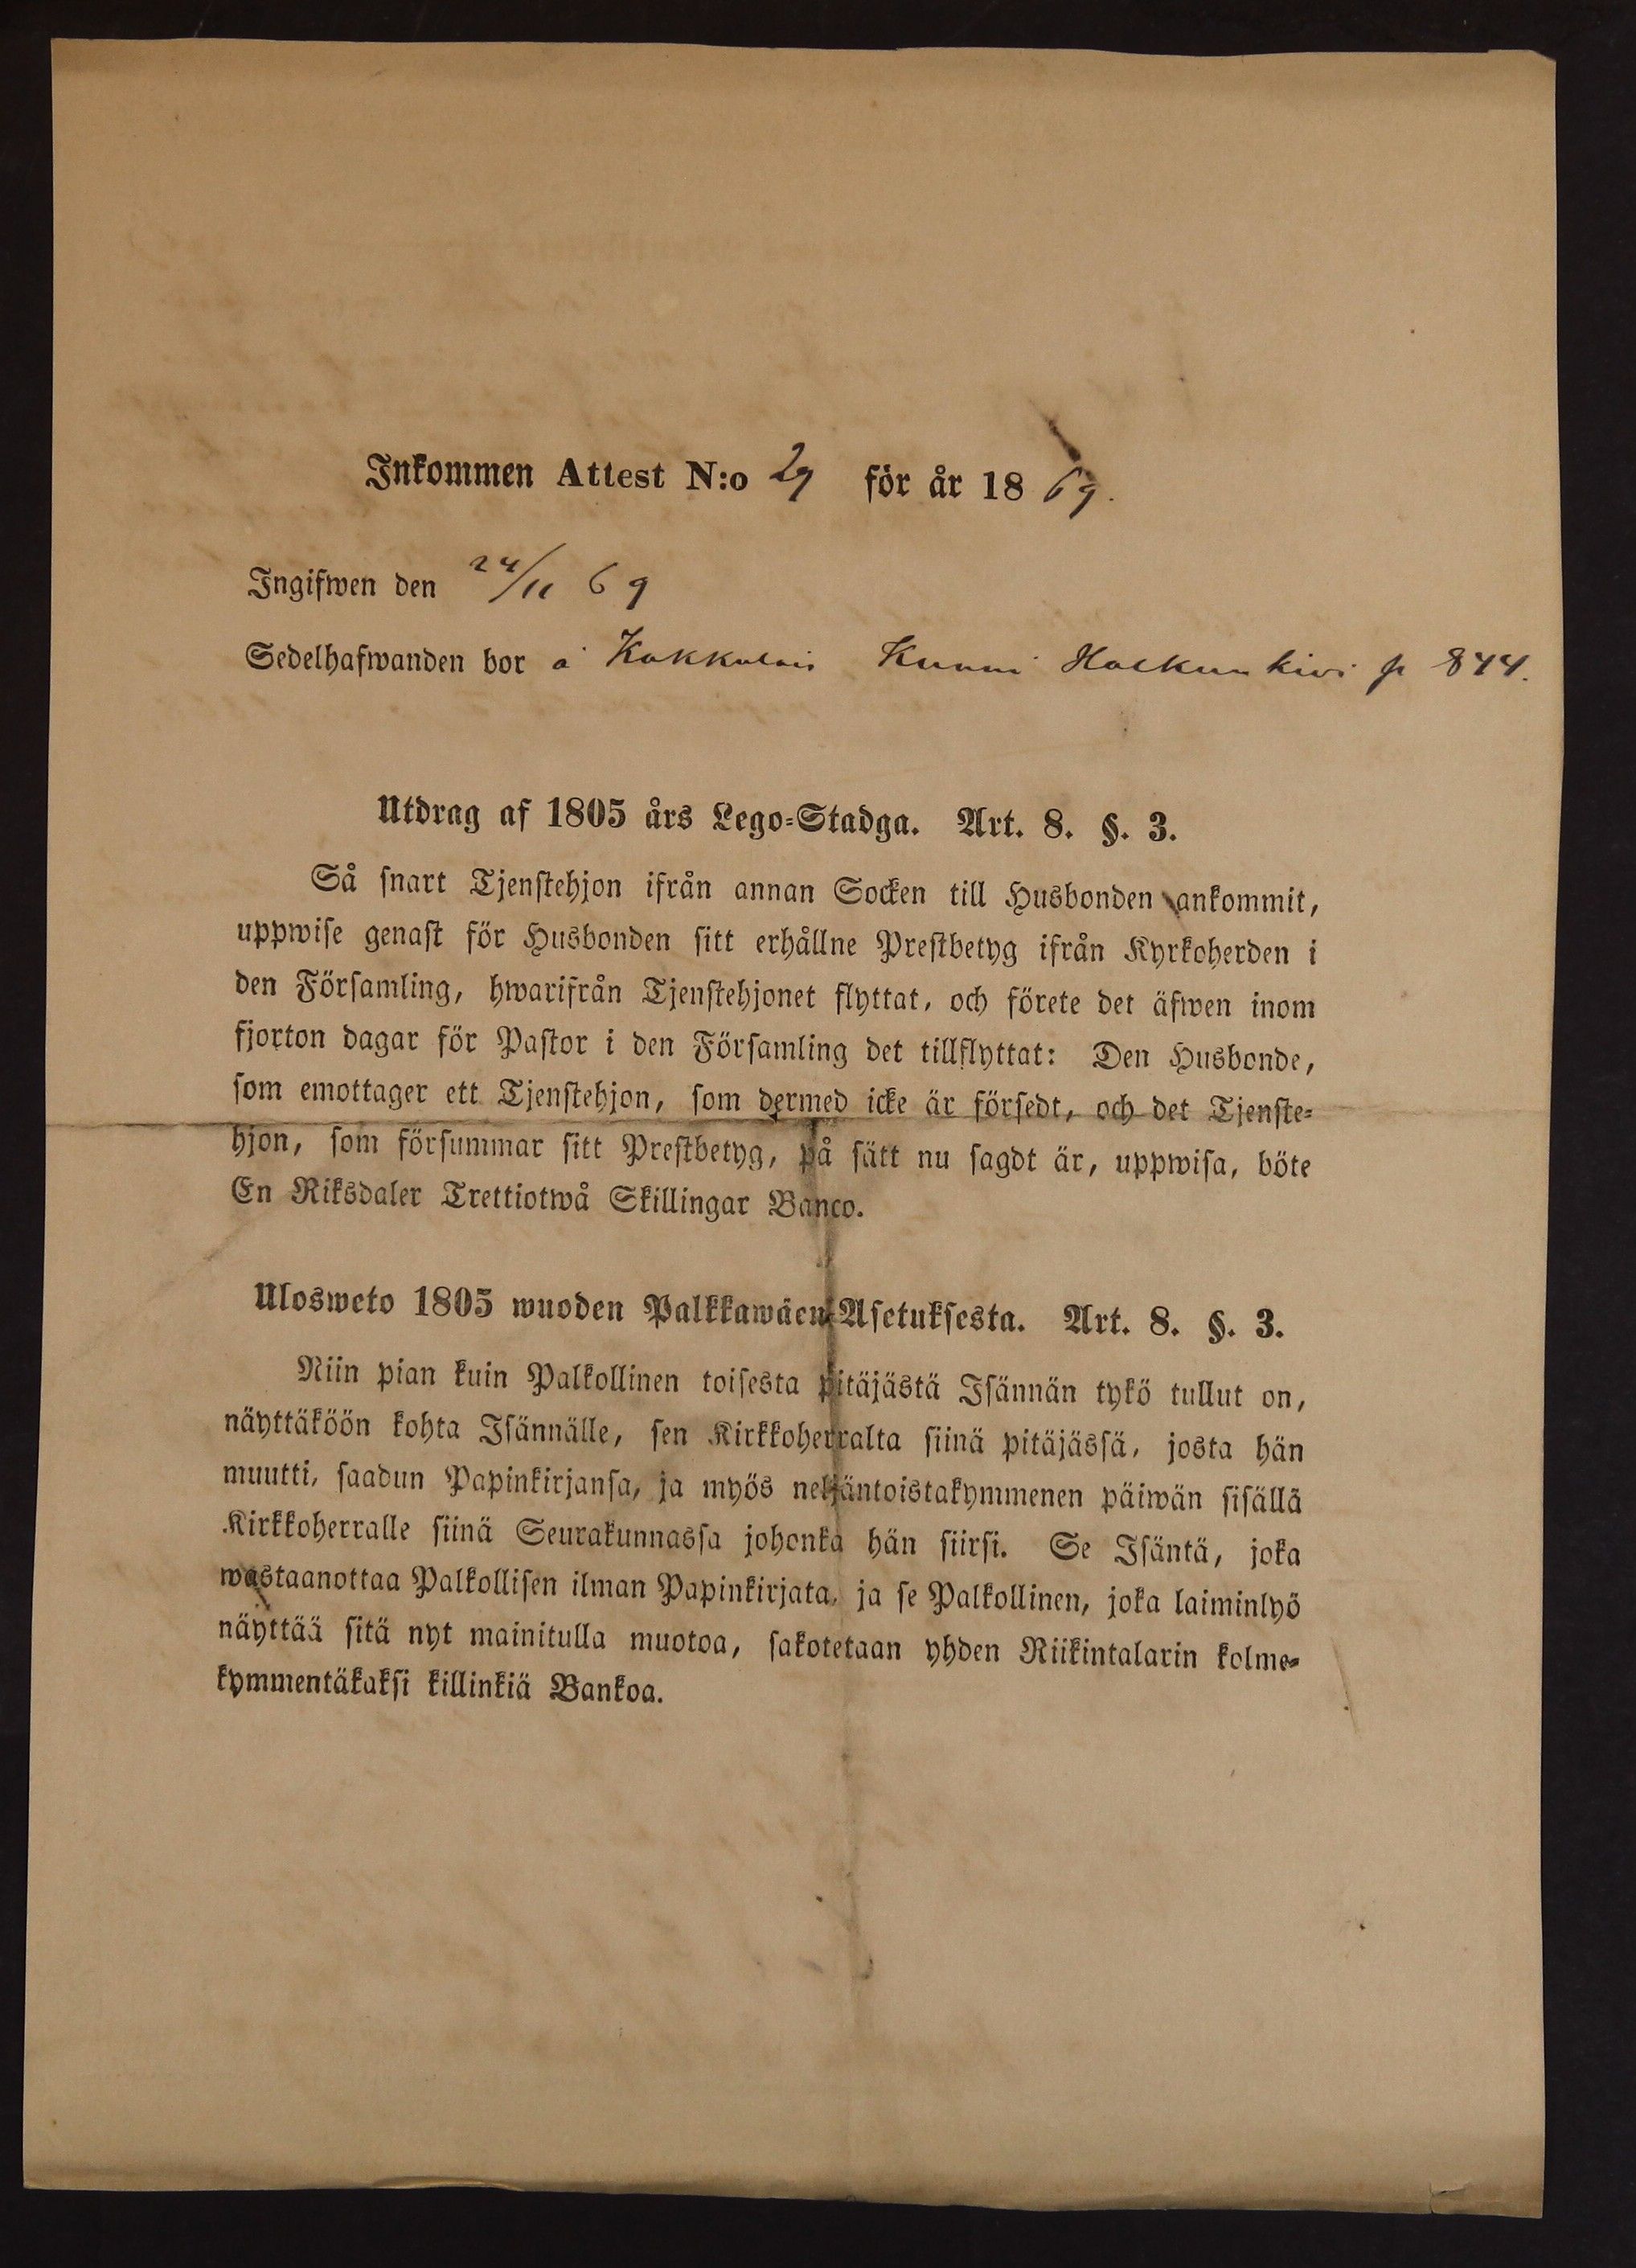 Inkommen Attest N:o 29 för år 1869.
Ingifwen den 24/11 69
Sedelhafwanden bor å Kakkulais Kunni p 844.
Utdrag af 1805 års Lego-Stadga. Art. 8. §. 3.
Så snart Tjenstehjon ifrån annan Socken till Husbonden ankommit,
uppwise genast för Husbonden sitt erhållne Prestbetyg ifrån Kyrkoherden i
den Församling, hwarifrån Tjenstehjonet flyttat, och förete det äfwen inom
fjorton dagar för Pastor i den Församling det tillflyttat: Den Husbonde,
som emottager ett Tjenstehjon, som dermed icke är försedt, och det Tjenste-
hjon, som försummar sitt Prestbetyg, på sätt nu sagdt är, uppwisa, böte
En Riksdaler Trettiotwå Skillingar Banco.
Ulosweto 1805 wuoden Palkkawäen-Asetuksesta. Art. 8. §. 3.
Niin pian kuin Palkollinen toisesta pitäjästä Isännän tykö tullut on,
näyttäköön kohta Isännälle, sen Kirkkoherralta siinä pitäjässä, josta hän
muutti, saadun Papinkirjansa, ja myös neljäntoistakymmenen päiwän sisällä
Kirkkoherralle siinä Seurakunnassa johonka hän siirsi. Se Isäntä, joka
wastaanottaa Palkollisen ilman Papinkirjata, ja se Palkollinen, joka laiminlyö
näyttää sitä nyt mainitulla muotoa, sakotetaan yhden Riikintalarin kolme-
kymmentäkaksi killinkiä Bankoa.